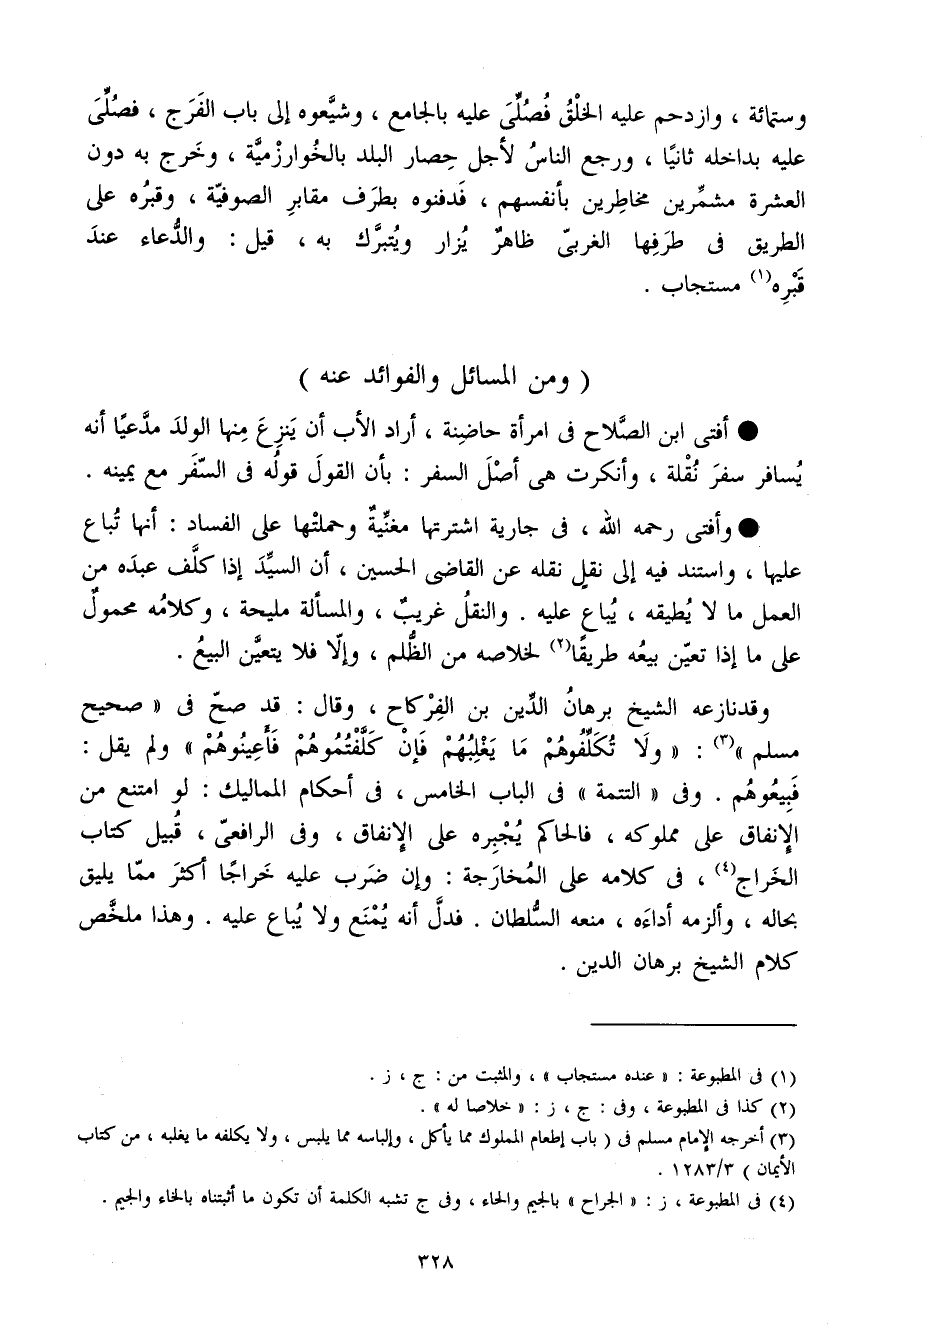 وستمائة ، وازدحم عليه الخلْقُ فُصلِّىَ عليه بالجامع ، وشيَّعوه إلى باب الفَرَج ، فصُلِّىَ
عليه بداخله ثانيًا ، ورجع الناسُ لأجل حِصار البلد بالخُوارزْميَّة ، وخَرج به دون
العشرة مشمِّرين مخاطِرين بأنفسهم ، فَدفنوه بطرَف مقابرِ الصوفيّة ، وقبرُه على
الطريق فى طرَفِها الغربىّ ظاهرٌ يُزار ويُتبرَّك به ، قيل : والدُّعاء عندَ
قَبْرِه(١) مستجاب .
( ومن المسائل والفوائد عنه )
● أفتى ابن الصَّلاح فى امرأة حاضِنة ، أراد الأب أن يَنزِعَ مِنها الولدَ مدَّعيًا أنه
يُسافر سفرَ نُقْلة ، وأنكرت هى أصْلَ السفر : بأن القولَ قولُه فى السّفَر مع يمينه .
● وأفتى رحمه الله ، فى جارية اشترتها مغنِّيةٌ وحملتْها على الفساد : أنها تُباع
عليها ، واستند فيه إلى نقلٍ نقله عن القاضى الحسين ، أن السيِّدَ إذا كلَّف عبدَه من
العمل ما لا يُطيقه ، يُباع عليه . والنقلُ غريبٌ ، والمسألة مليحة ، وكلامُه محمولٌ
على ما إذا تعيّن بيعُه طريقًا(٢) لخلاصه من الظُّلم ، وإلّا فلا يتعيَّن البيعُ .
وقدنازعه الشيخ برهانُ الدِّين بن الفِرْكاح ، وقال : قد صحّ فى « صحيح
مسلم »(٣) : « ولَا تُكَلِّفُوهُمْ مَا يَغْلِبُهُمْ فَإِنْ كَلَّفْتُمُوهُمْ فَأَعِينُوهُمْ » ولم يقل :
فَبِيعُوهُم . وفى « التتمة » فى الباب الخامس ، فى أحكام المماليك : لو امتنع من
الإنفاق على مملوكه ، فالحاكم يُجْبِره على الإنفاق ، وفى الرافعىّ ، قُبيل كتاب
الخَراج(٤) ، فى كلامه على المُخارَجة : وإن ضَرب عليه خَراجًا أكثرَ ممّا يليق
بحاله ، وألزمه أداءَه ، منعه السُّلطان . فدلَّ أنه يُمْنَع ولا يُباع عليه . وهذا ملخَّص
كلام الشيخ برهان الدين .
(١) فى المطبوعة : « عنده مستجاب » ، والمثبت من : ج ، ز .
(٢) كذا فى المطبوعة ، وفى : ج ، ز : « خلاصا له » .
(٣) أخرجه الإمام مسلم فى ( باب إطعام المملوك مما يأكل ، وإلباسه مما يلبس ، ولا يكلفه ما يغلبه ، من كتاب
الأيمان ) ١٢٨٣/٣ .
(٤) فى المطبوعة ، ز : « الجراح » بالجيم والحاء ، وفى ج تشبه الكلمة أن تكون ما أثبتناه بالخاء والجيم .
٣٢٨